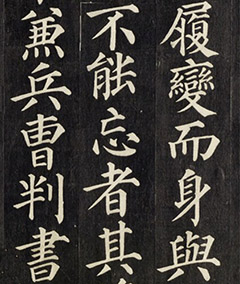 履變而身與
不能忘者其
兼兵曹判書